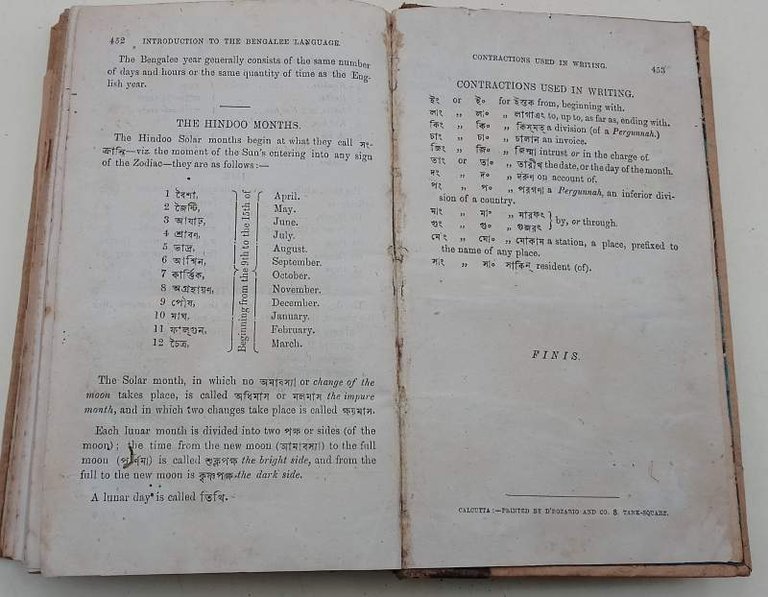 452 INTRODUCTION TO THE BENGALEE LANGUAGE.
The Bengalee year generally consists of the same number
of days and hours or the same quantity of time as the Eng-
lish year.
THE HINDOO MONTHS.
The Hindoo Solar months begin at what they call সং-
ক্রান্তি—viz. the moment of the Sun's entering into any sign
of the Zodiac—they are as follows :—
1 বৈশা, April.
2 জৈষ্ঠি, May.
3 আষাঢ়, June.
4 শ্রাবণ, July.
5 ভাদ্র, August.
6 আশ্বিন, September.
7 কার্ত্তিক, October.
8 অগ্রহায়ণ, November.
9 পৌষ, December.
10 মাঘ, January.
11 ফাল্গুন, February.
12 চৈত্র, March.
Beginning from the 9th to the 15th of
The Solar month, in which no অমাবস্যা or change of the
moon takes place, is called অধিমাস or মলমাস the impure
month, and in which two changes take place is called ক্ষয়মাস.
Each lunar month is divided into two পক্ষ or sides (of the
moon) ; the time from the new moon (আমাবস্যা) to the full
moon (পূর্ণিমা) is called শুক্লপক্ষ the bright side, and from the
full to the new moon is কৃষ্ণপক্ষ the dark side.
A lunar day is called তিথি.
CONTRACTIONS USED IN WRITING. 453
CONTRACTIONS USED IN WRITING.
ইং or ই০ for ইস্তক from, beginning with.
লাং „ লা০ „ লাগাএৎ to, up to, as far as, ending with.
কিং „ কি০ „ কিসমৎ a division (of a Pergunnah.)
চাং „ চা০ „ চালান an invoice.
জিং „ জি০ „ জিম্মা intrust or in the charge of
তাং or তা০ „ তারীখ the date, or the day of the month.
দং „ দ০ „ দরুণ on account of.
পং „ প০ „ পরগণা a Pergunnah, an inferior divi-
sion of a country.
মাং „ মা০ „ মারফৎ } by, or through.
গুং „ গু০ „ গুজরৎ
মোং „ মো০ „ মোকাম a station, a place, prefixed to
the name of any place.
সাং „ সা০ সাকিন্ resident (of).
FINIS.
CALCUTTA :—PRINTED BY D'ROZARIO AND CO. 8, TANK-SQUARE.